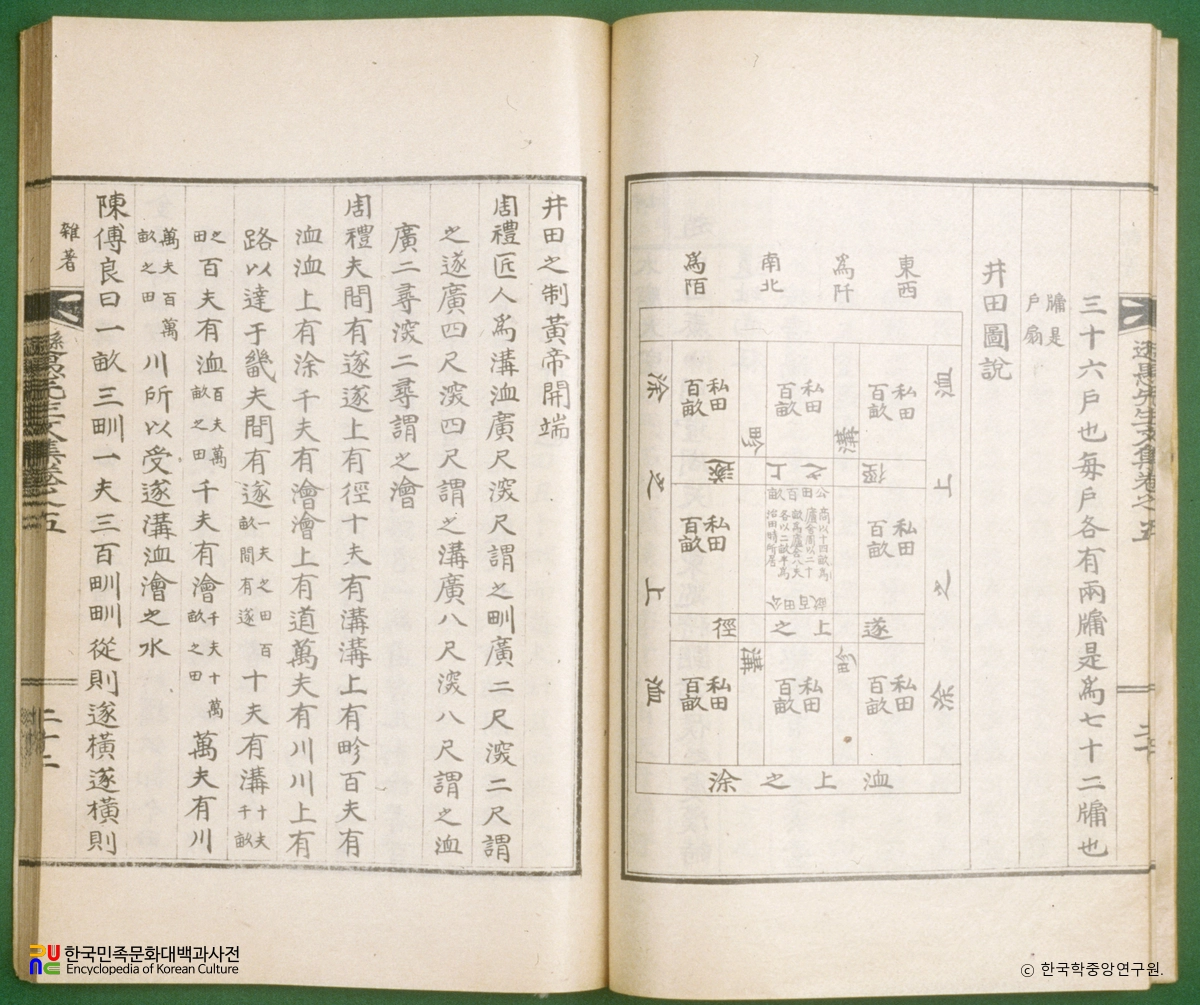 三十六戶也每戶各有兩牖是爲七十二牖也
牖是
戶扇
井田圖說
東西
爲阡
南北
爲陌
洫上之涂
私田百畝
私田百畝
私田百畝
溝
畛
徑
遂上之
私田百畝
公田百畝
廬舍
公田百畝
私田百畝
遂上之徑
畛
溝
私田百畝
私田百畝
私田百畝
涂之上洫
洫上之涂
井田之制黃帝開端
周禮匠人爲溝洫廣尺深尺謂之甽廣二尺深二尺謂
之遂廣四尺深四尺謂之溝廣八尺深八尺謂之洫
廣二尋深二尋謂之澮
周禮夫間有遂遂上有徑十夫有溝溝上有畛百夫有
洫洫上有涂千夫有澮澮上有道萬夫有川川上有
路以達于畿夫間有遂一夫之田百畝間有遂十夫有溝十夫千畝
之田百夫有洫百夫萬畝之田千夫有澮千夫十萬畝之田萬夫有川
萬夫百萬畝之田川所以受遂溝洫澮之水
陳傅良曰一畝三甽一夫三百甽甽從則遂橫遂橫則
雜著
先生文集卷之五
二十二
한국민족문화대백과사전
Encyclopedia of Korean Culture
© 한국학중앙연구원.